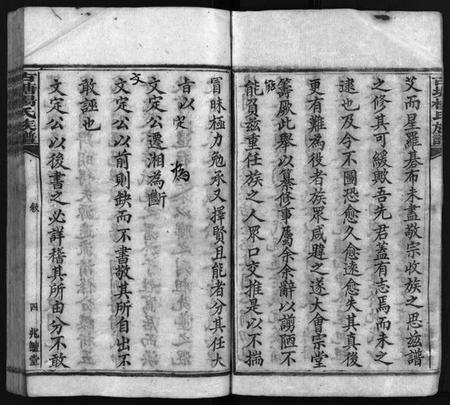 艾而星羅棊布未盡敬宗收族之思茲譜
之修其可緩歟吾先君蓋有志焉而未之
逮也及今不圖恐愈久愈遠愈失其真後
更有難為後者族眾咸韙之遂大會宗堂
籌厥此舉以纂修事屬余余辭以謭陋不
能肩茲重任族之人眾口交推是以不揣
冒昧極力勉承又擇賢且能者分其任大
旨以
文定公遷湘為斷
文定公以前則缺而不書敬其所自出不
敢誣也
文定公以後書之必詳稽其所由分不敢
氏族譜
敘
四
堂